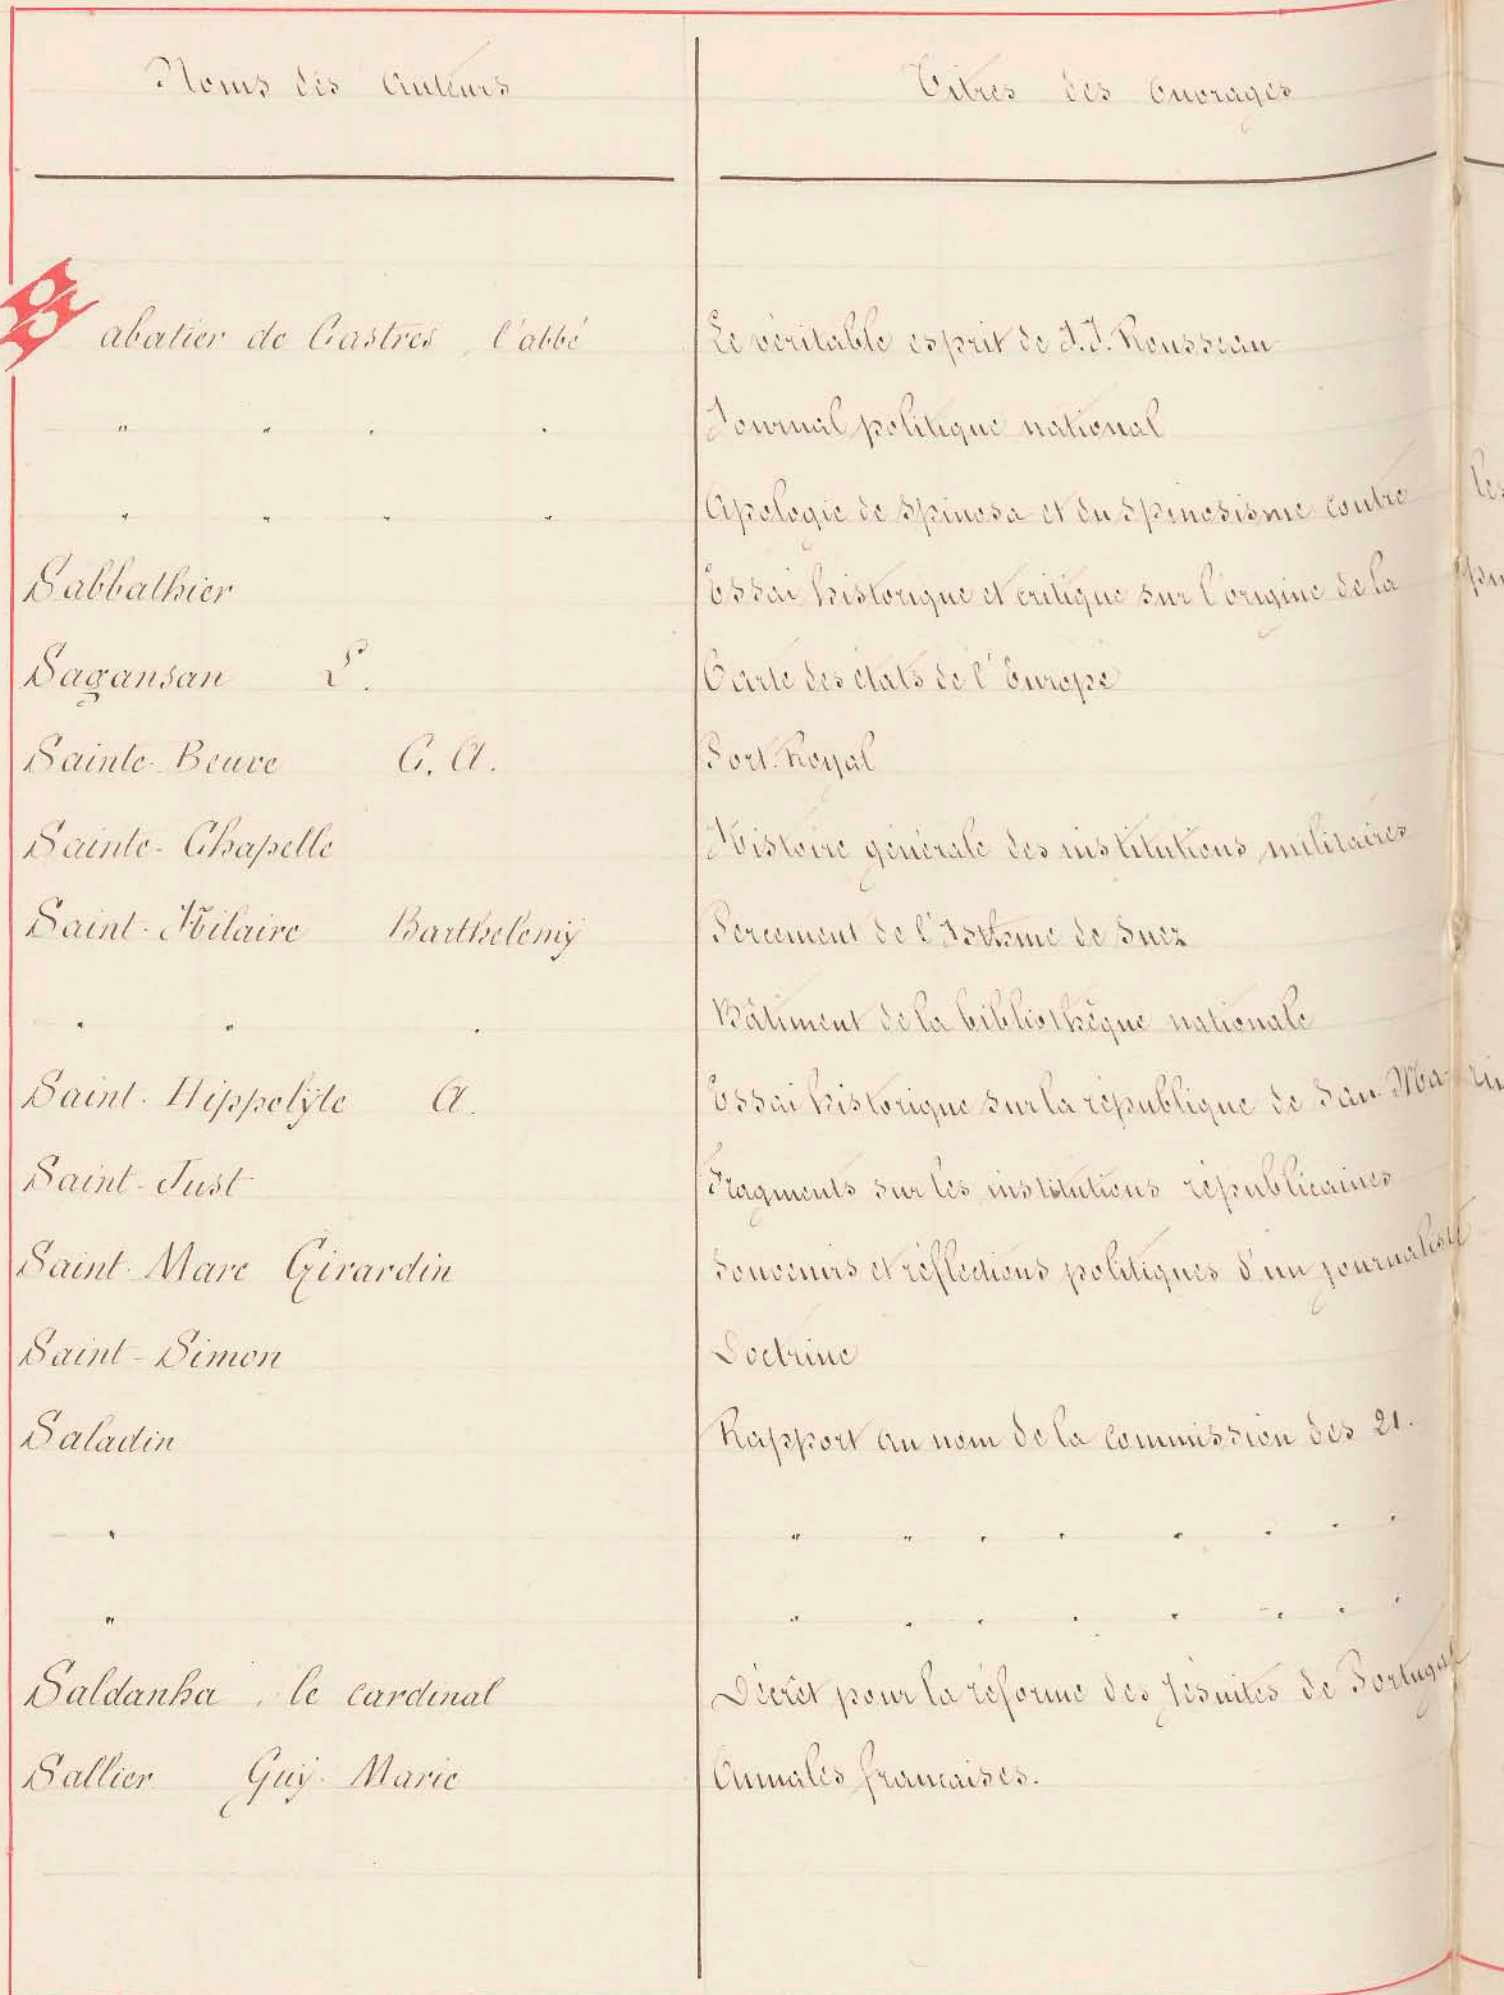 Noms des Auteurs Titres des Ouvrages
Sabatier de Castres, l'abbé Le véritable esprit de J.J. Rousseau
" " " " Journal politique national
" " " " Apologie de Spinosa et du Spinosisme contre les
Sabbathier Essai historique et critique sur l'origine de la
Sagansan L. Carte des états de l'Europe
Sainte-Beuve C. A. Port-Royal
Sainte-Chapelle Histoire générale des institutions militaires
Saint-Hilaire Barthelemy Percement de l'Isthme de Suez
" " " Bâtiment de la bibliothèque nationale
Saint-Hippolyte A. Essai historique sur la république de San-Marin
Saint-Just Fragments sur les institutions républicaines
Saint-Marc Girardin Souvenirs et réflections politiques d'un journaliste
Saint-Simon Doctrine
Saladin Rapport au nom de la Commission des 21.
" " " " " " " " "
" " " " " " " " "
Saldanha, le cardinal Décret pour la réforme des Jésuites de Portugal
Sallier Guy-Marie Annales françaises.